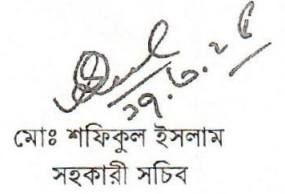 ১৭.৬.২৫
মোঃ শফিকুল ইসলাম
সহকারী সচিব